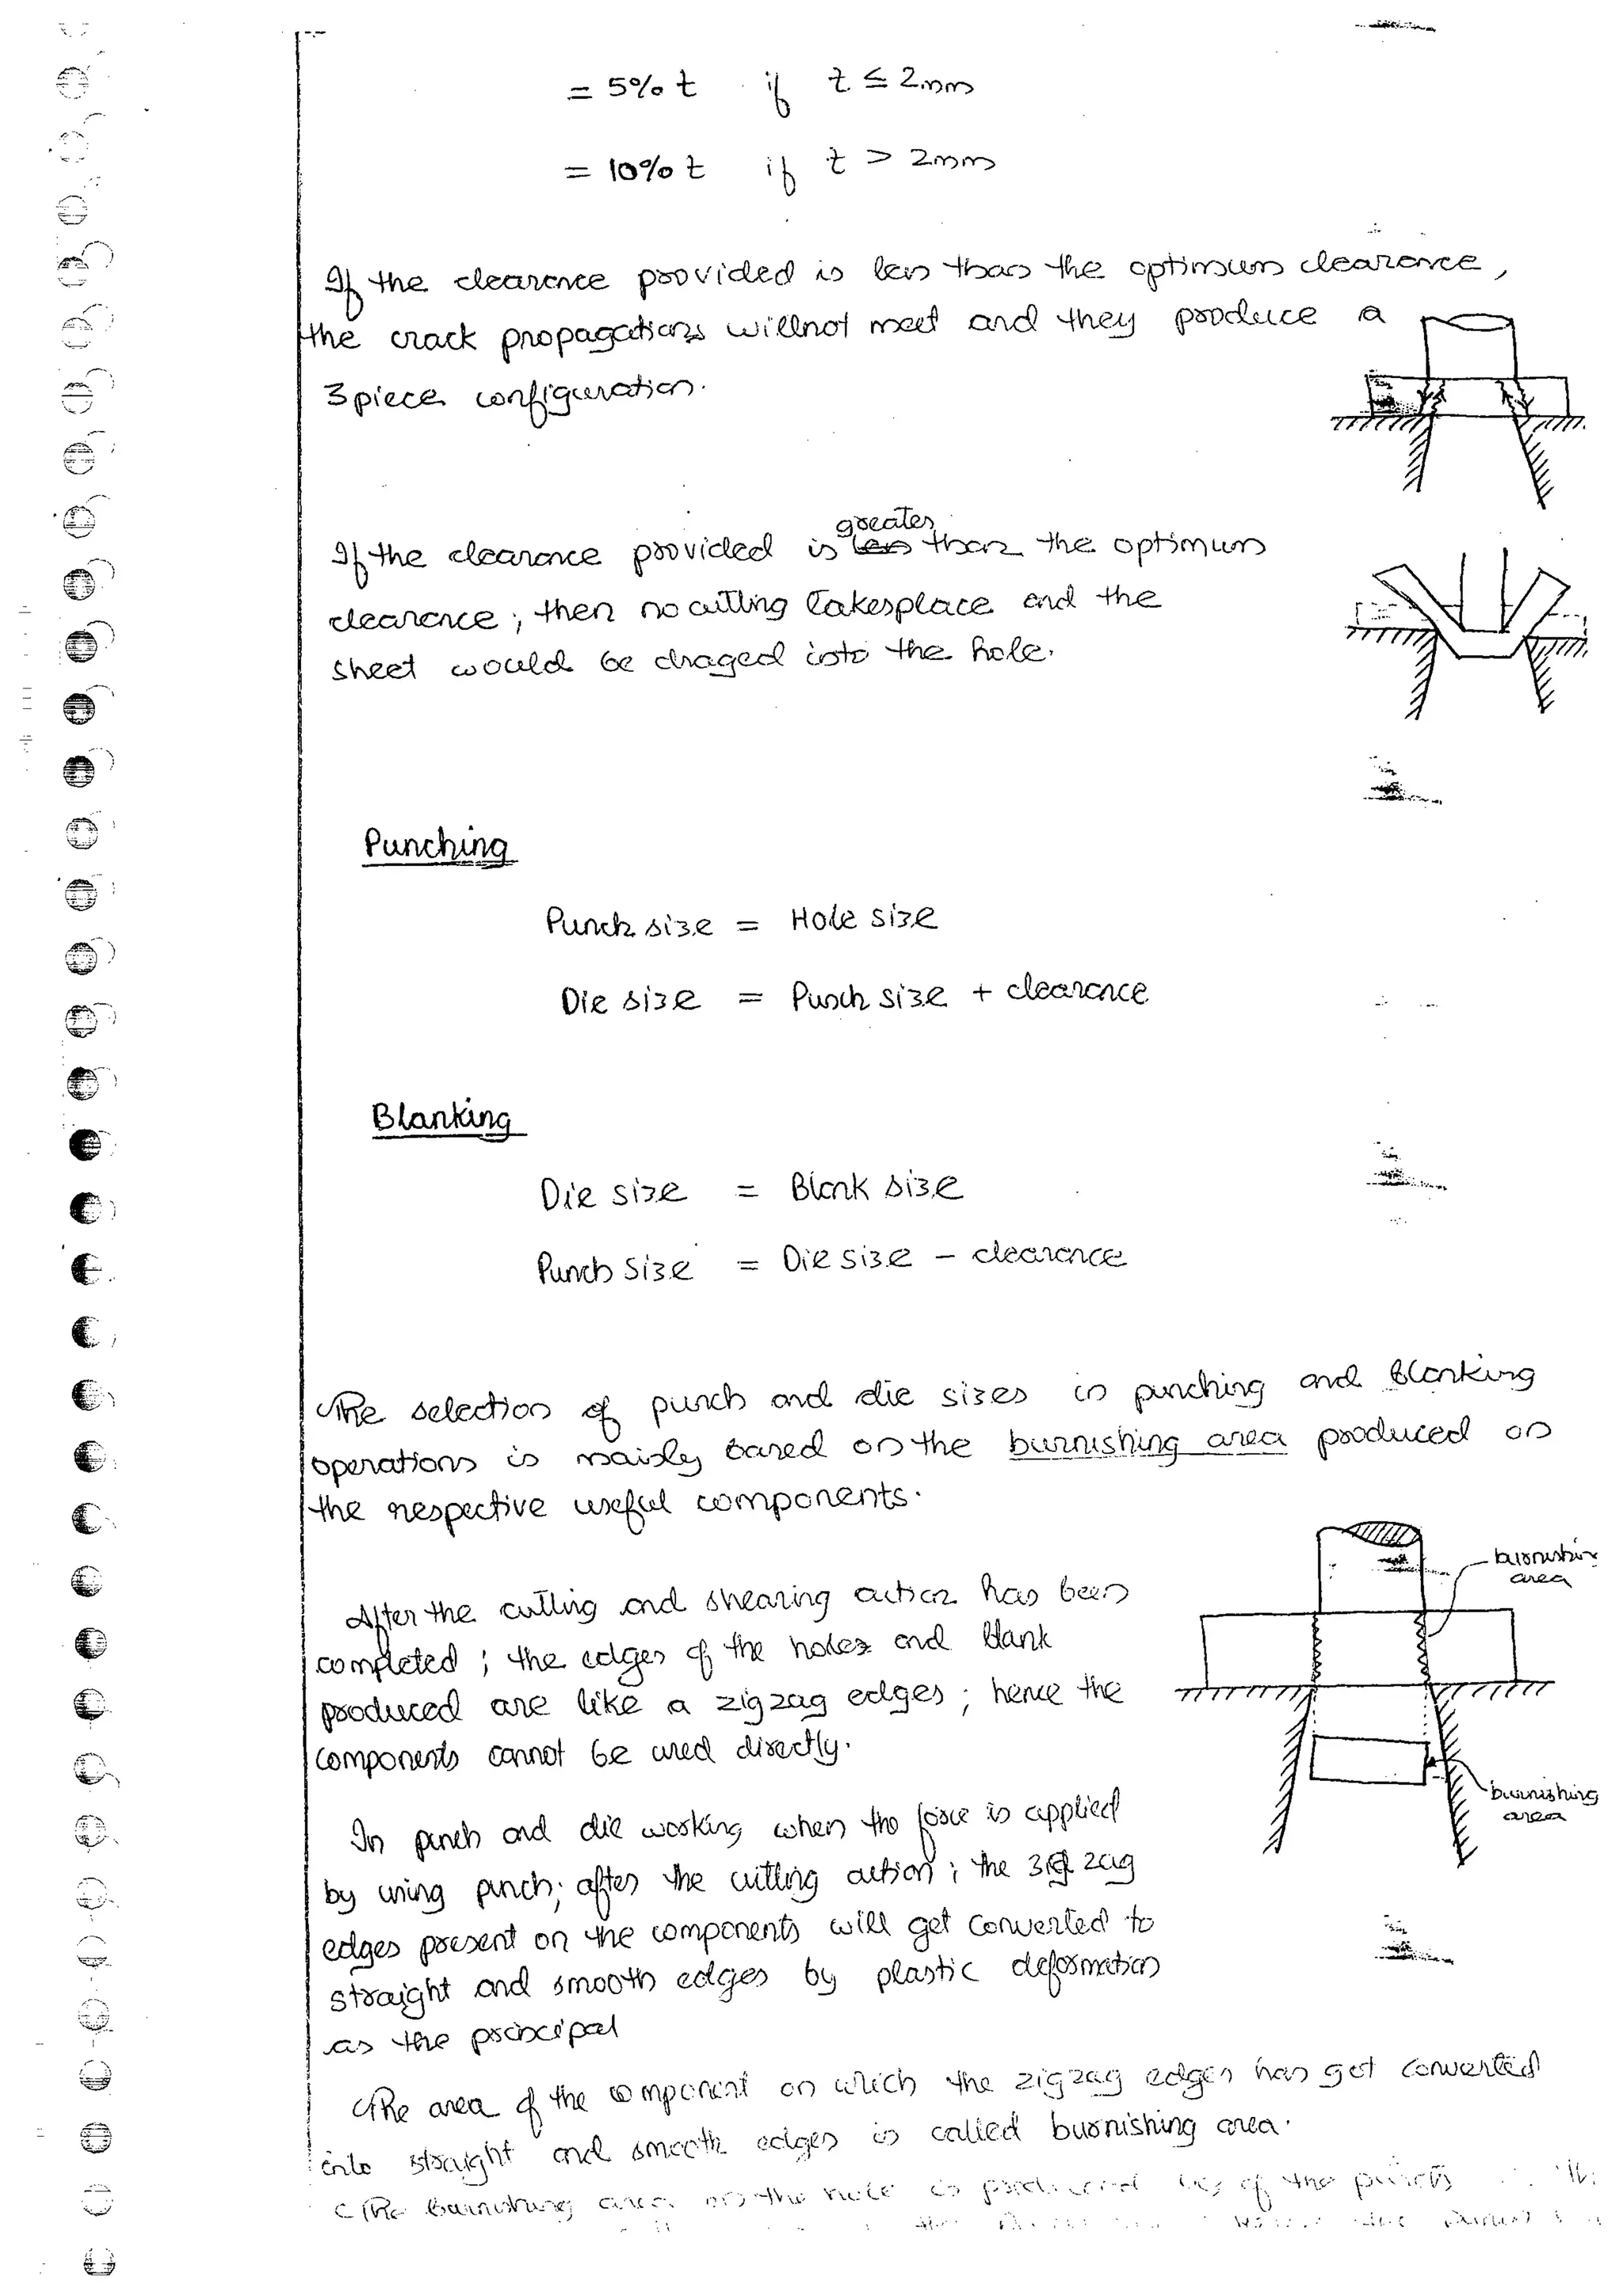 = 5% t if t ≤ 2mm
= 10% t if t > 2mm
If the clearance provided is less than the optimum clearance,
the crack propagations willnot meet and they produce a
3 piece configuration.
If the clearance provided is greater less than the optimum
clearance; then no cutting takesplace and the
sheet would be draged into the hole.
Punching
Punch size = Hole size
Die size = Punch size + clearance
Blanking
Die size = Blank size
Punch size = Die size - clearance
The selection of punch and die sizes in punching and blanking
operations is mainly based on the burnishing area produced on
the respective useful components.
burnishin
area
After the cutting and shearing action has been
completed; the edges of the holes and blank
produced are like a zigzag edges; hence the
components cannot be used directly.
burnishing
area
In punch and die working when the force is applied
by using punch; after the cutting action; the zig zag
edges present on the components will get converted to
straight and smooth edges by plastic deformation
as the principal
The area of the component on which the zigzag edges has got converted
into straight and smooth edges is called burnishing area.
The burnishing area on the hole is of the punch